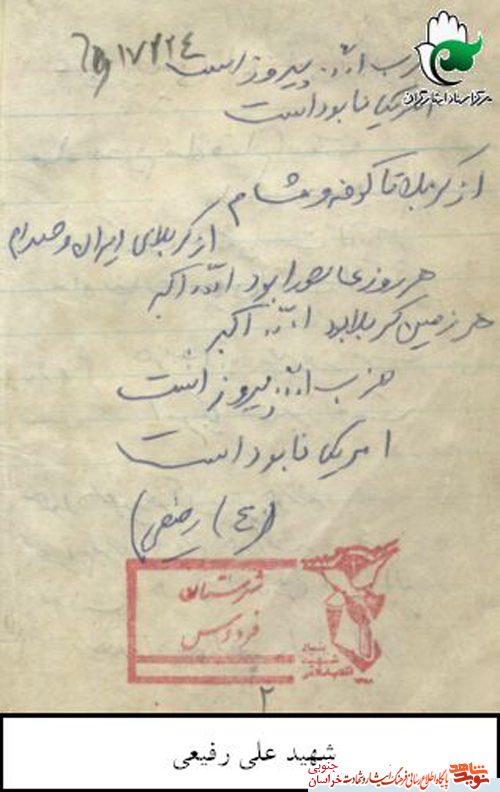 حزب الله پیروز است ۱۷۴۲٤
امریکا نابود است
از کربلا تا کوفه و شام
از کربلای ایران و صدام
هر روز عاشورا بود الله اکبر
هر زمین کربلا بود الله اکبر
حزب الله پیروز است
امریکا نابود است
(ع) رفیعی
شهرستان
فردوس
بنیاد
شهید
انقلاب اسلامی
۲
مرکز اسناد ایثارگران
شهید علی رفیعی
نوید شاهد
پایگاه اطلاع رسانی فرهنگ ایثار و شهادت
خراسان جنوبی